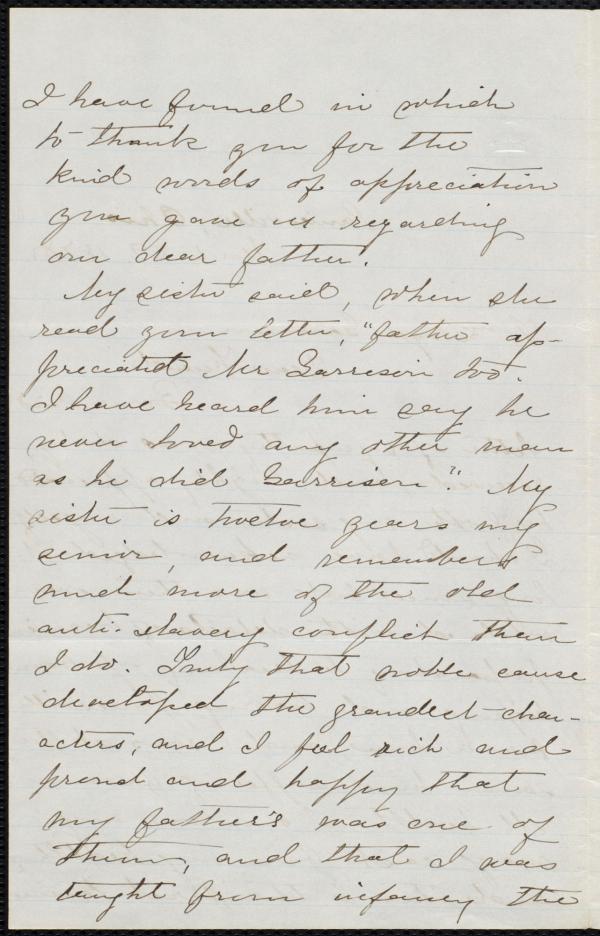 I have found in which
to thank you for the
kind words of appreciation
you gave us regarding
our dear father.
My sister said, when she
read your letter, "father ap-
preciated Mr Garrison too.
I have heard him say he
never loved any other man
as he did Garrison". My
sister is twelve years my
senior, and remembers
much more of the old
anti-slavery conflict than
I do. Truly that noble cause
developed the grandest char-
acters, and I feel rich and
proud and happy that
my father's was one of
them, and that I was
taught from infancy the